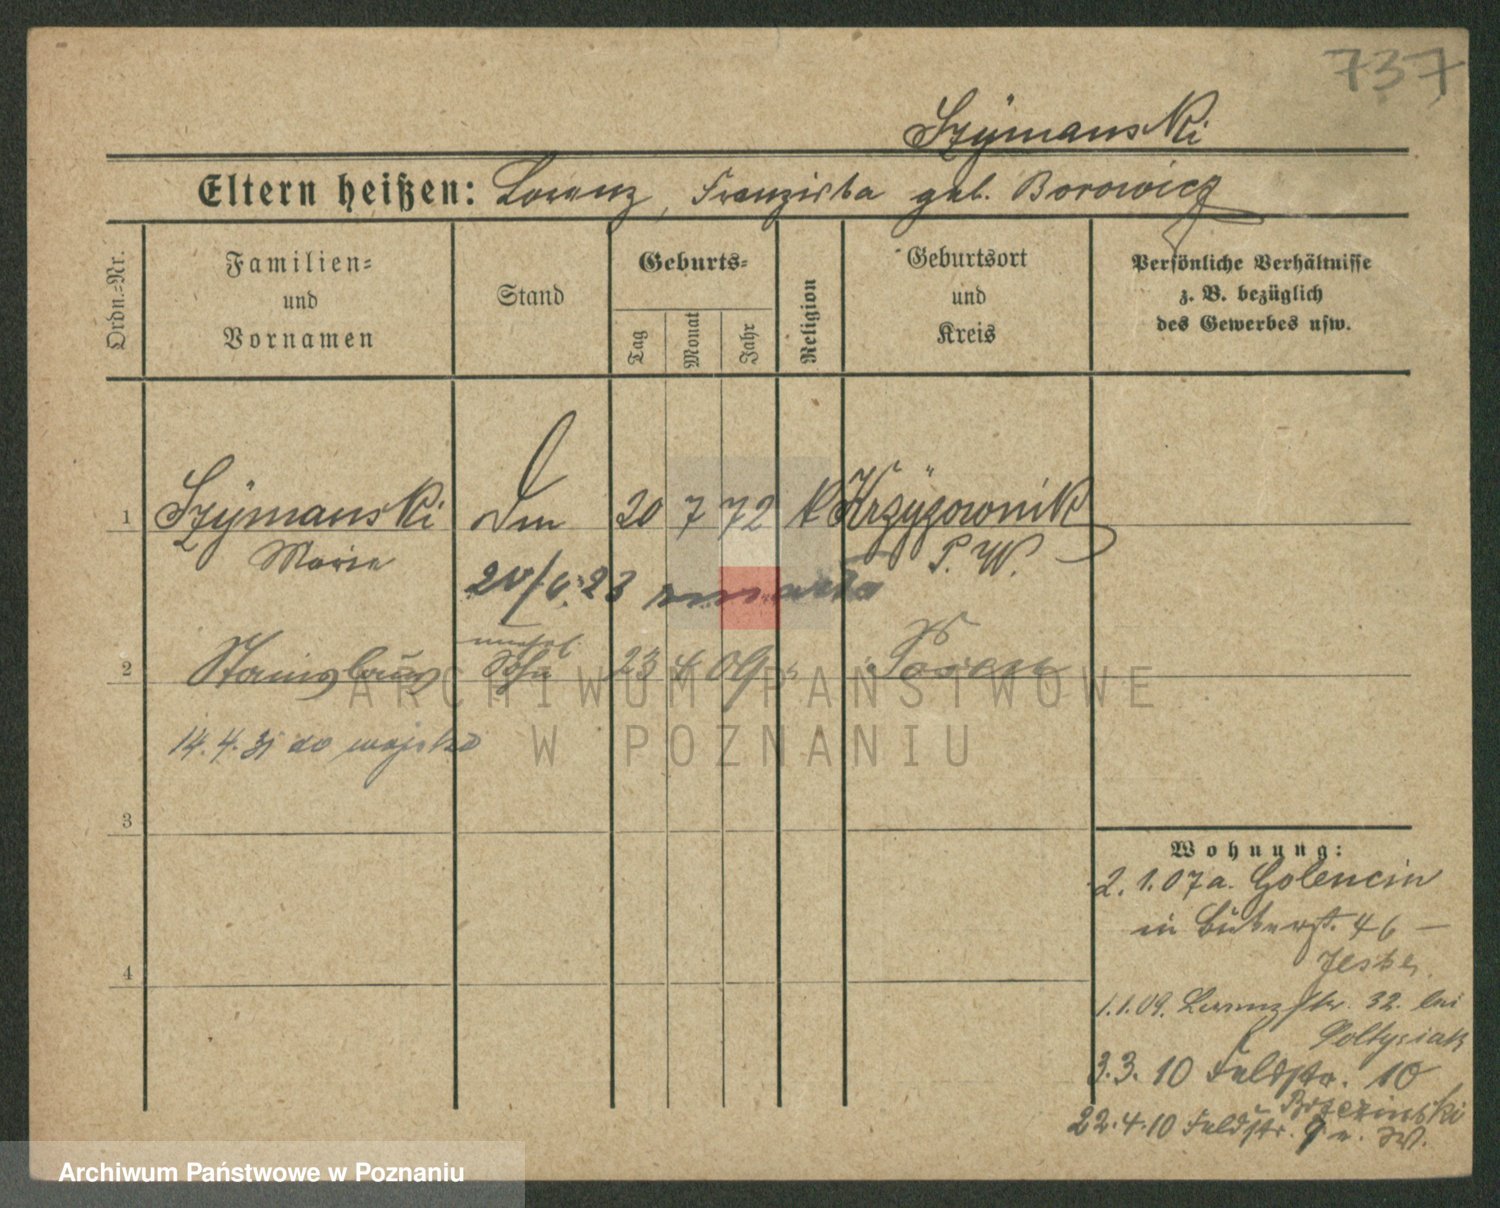 737
Szÿmanski
Eltern heißen: Lorenz, Franziska geb. Borowicz
Ordn.-Nr.
Familien-
und
Vornamen
Stand
Geburts-
Tag
Monat
Jahr
Religion
Geburtsort
und
Kreis
Persönliche Verhältnisse
z. B. bezüglich
des Gewerbes usw.
1 Szÿmanski 20 7 72 k Krzÿzownik
Marie P. W.
23 zmarła
unehel.
2 Stanislaus Sohn 23 4 09 " Posen
14.4.31 do wojska
3
4
Wohnung:
2.1.07 a. Golencin
in Bukerstr. 46 –
Jeske.
1.1.09. Lorenzstr. 32. bei
Poltysiak
3.3.10 Feldstr. 10
Brzezinski
22.4.10 Feldstr. 9 a. W.
ARCHIWUM PAŃSTWOWE
W POZNANIU
Archiwum Państwowe w Poznaniu